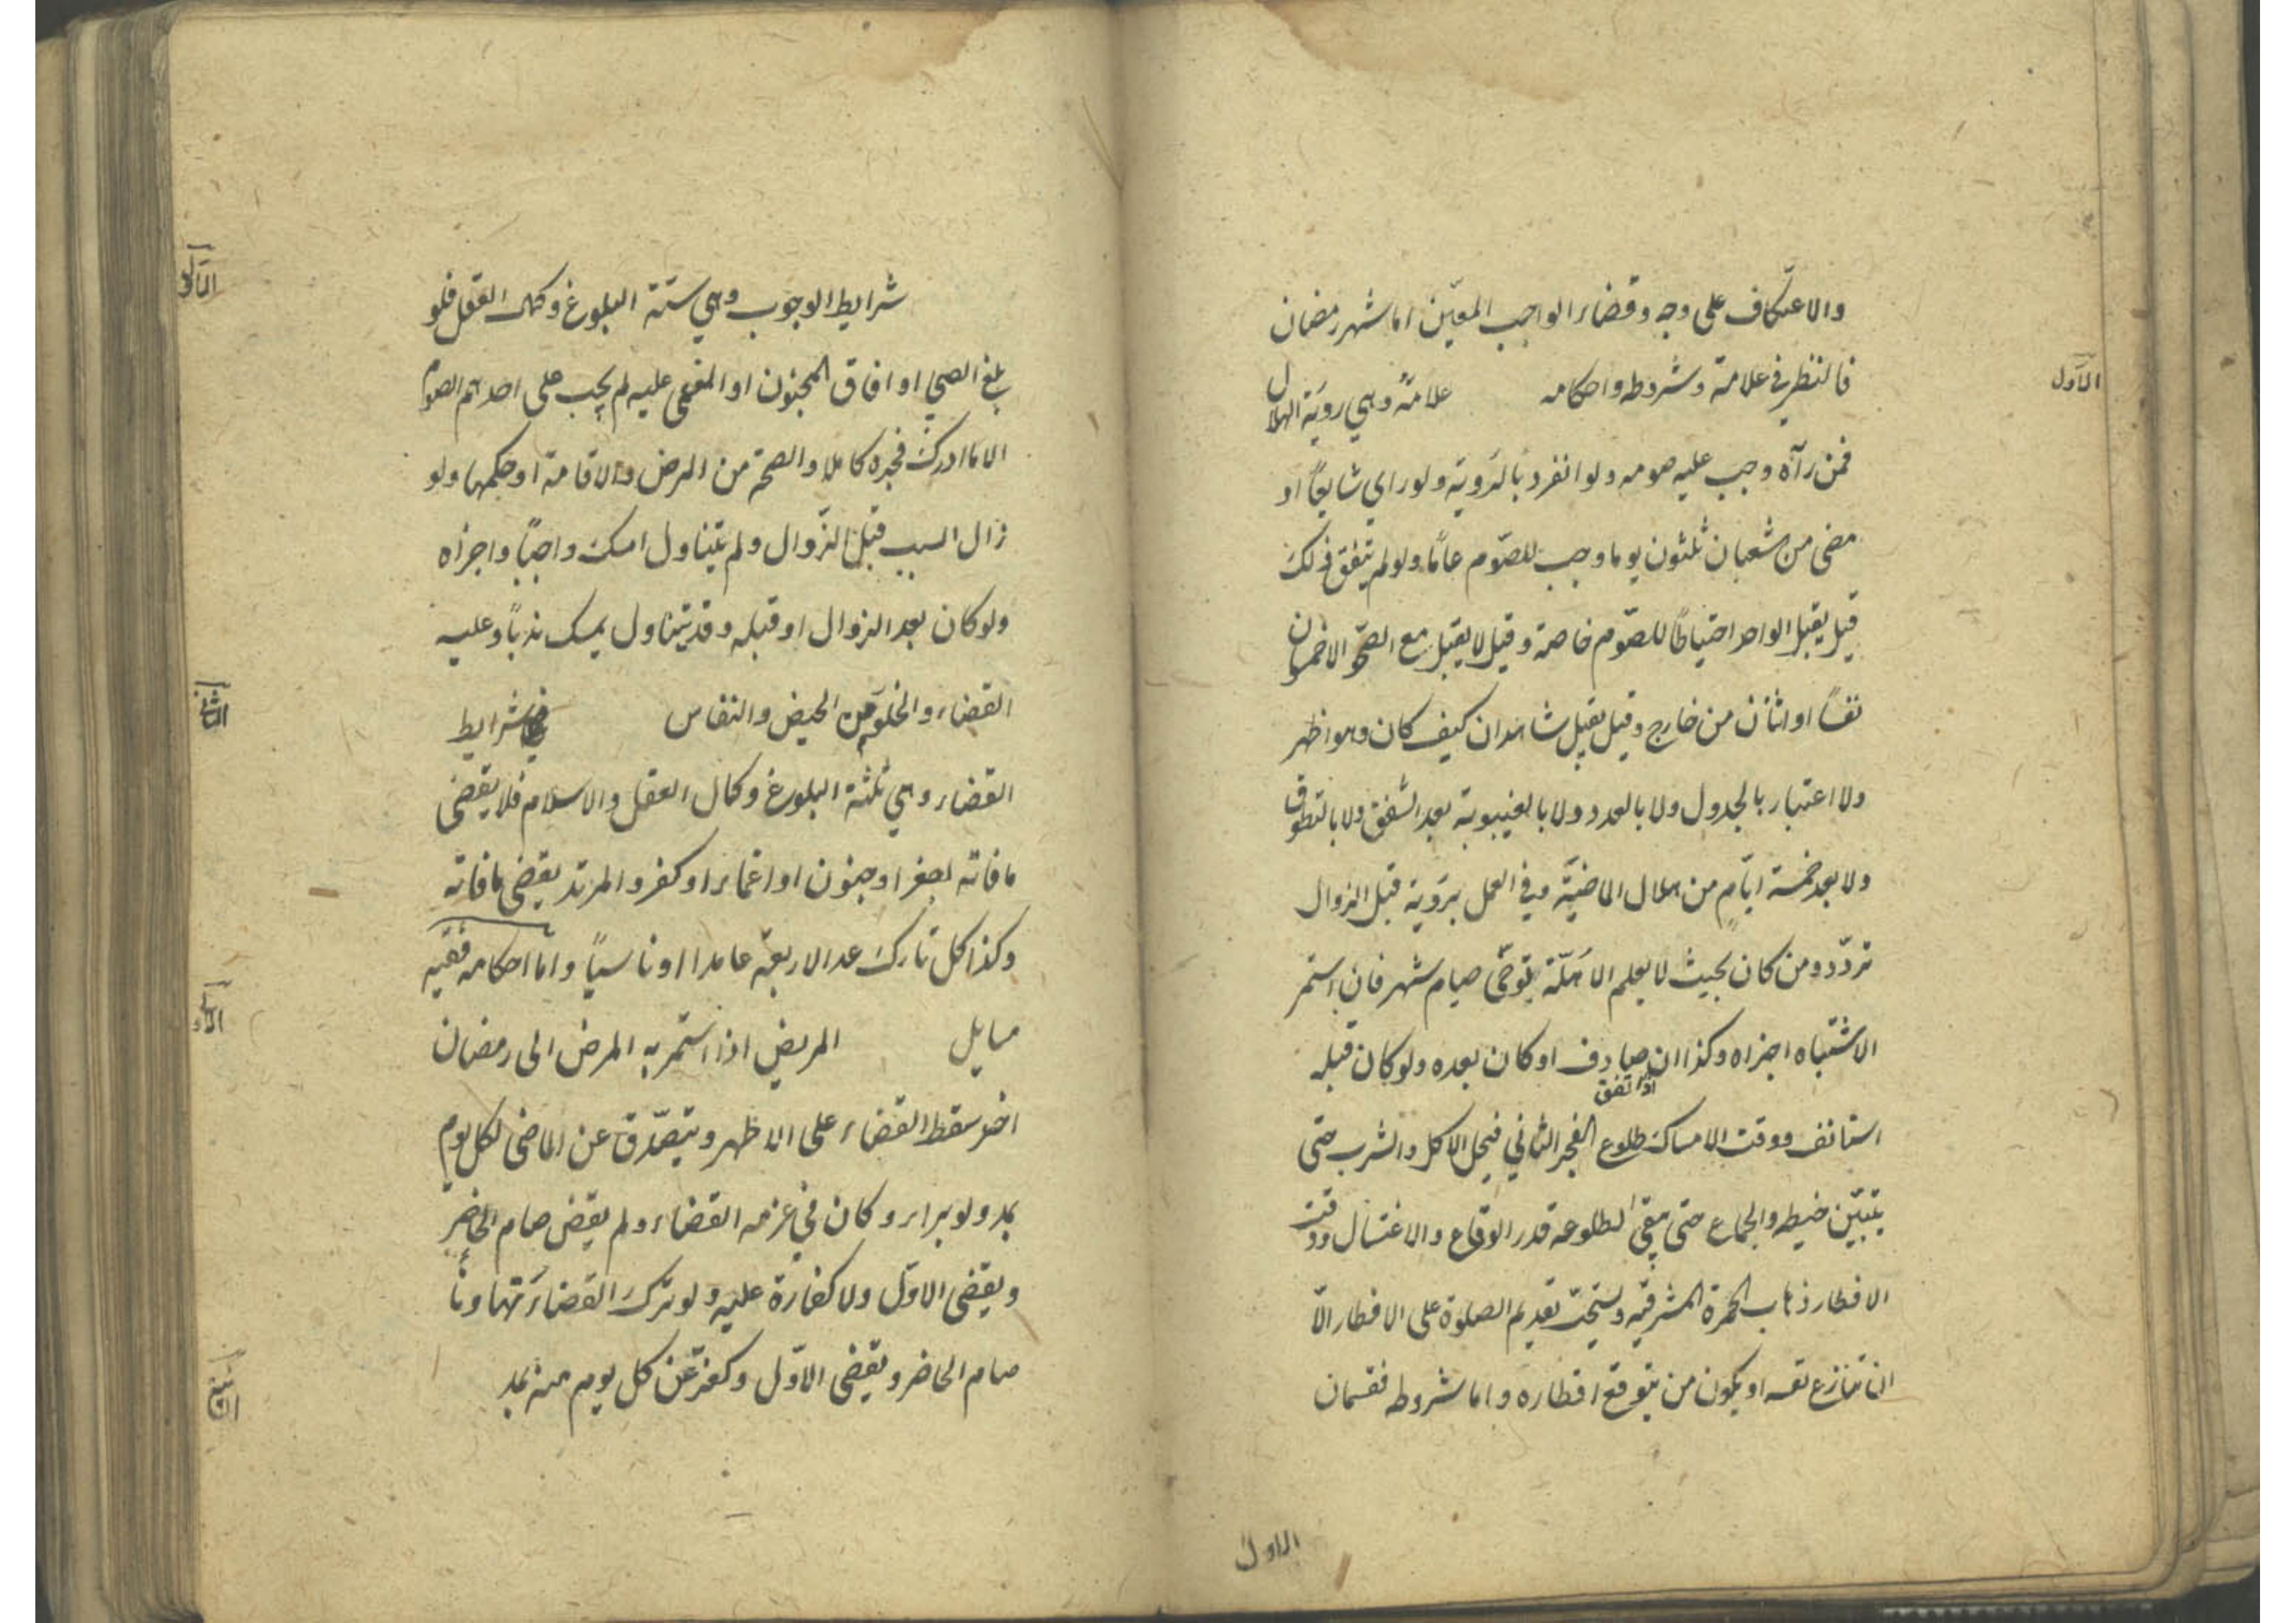 والاعتكاف على وجه وقضاء الواجب المعيّن اما شهر رمضان
الاول
فالنظر في علامته وشروطه واحكامه علامته وهي روية الهلال
فمن رآه وجب عليه صومه ولو انفرد بالرَوية ولو راي شايعًا او
مضى من شعبان ثلثون يوما وجب للصّوم عامًا ولو لم يتفق ذلك
قيل يقبل الواحد احتياطًا للصّوم خاصة وقيل لا يقبل مع الصحو الا خمسون
نفسًا او اثنان من خارج وقيل يقبل شاهدان كيف كان وهو اظهر
ولا اعتبار بالجدول ولا بالعدد ولا بالغيبوبة بعد الشفق ولا بالتطوق
ولا بعد خمسة ايّام من هلال الماضيّة وفي العمل برَوية قبل الزوال
تردّد ومن كان بحيث لا يعلم الاهَلّة يتوخى صيام شهر فان استمر
الاشتباه اجزاه وكذا ان صادف او كان بعده ولو كان قبله
او اتفق
استانف ووقت الامساك طلوع الفجر الثاني فيحل الاكل والشرب حتى
يتبيّن خيطه والجماع حتى يبقى لطلوعه قدر الوقاع والاغتسال ووقت
الافطار ذهاب الحمرة المشرقيّه ويستحبّ تقديم الصلوة على الافطار الّا
ان تنازع نفسه او يكون من يتوقع افطاره واما شروطه فقسمان
الاول
الاول
شرايط الوجوب وهي ستّة البلوغ وكمال العقل فلو
بلغ الصبي او افاق المجنون او المغمى عليه لم يجب على احدهم الصوم
الا ما ادرك فجره كاملا والصحة من المرض والاقامة او حكمها ولو
زال السبب قبل الزّوال ولم يتناول امسك واجبًا واجزاه
ولو كان بعد الزوال او قبله وقد يتناول يمسك ندبًا وعليه
الثاني
القضاء والخلو من الحيض والنفاس شرايط
القضاء وهي ثلثة البلوغ وكمال العقل والاسلام فلا يقضى
ما فاته لصغر او جنون او اغماء او كفر والمرتد يقضى ما فاته
وكذا كل تارك عدا الاربعة عامدا او ناسيًا وامّا احكامه ففيه
الاول
مسايل المريض اذا استمر به المرض الى رمضان
اخر سقط القضاء على الاظهر ويتصّدق عن الماضى لكل يوم
بمد ولو براء وكان في عزمه القضاء ولم يقض صام الحاضر
ويقضى الاوّل ولا كفارة عليه ولو ترك القضاءَ تهاونًا
صام الحاضر ويقضى الاوّل وكفرّ عن كل يوم منه بمد